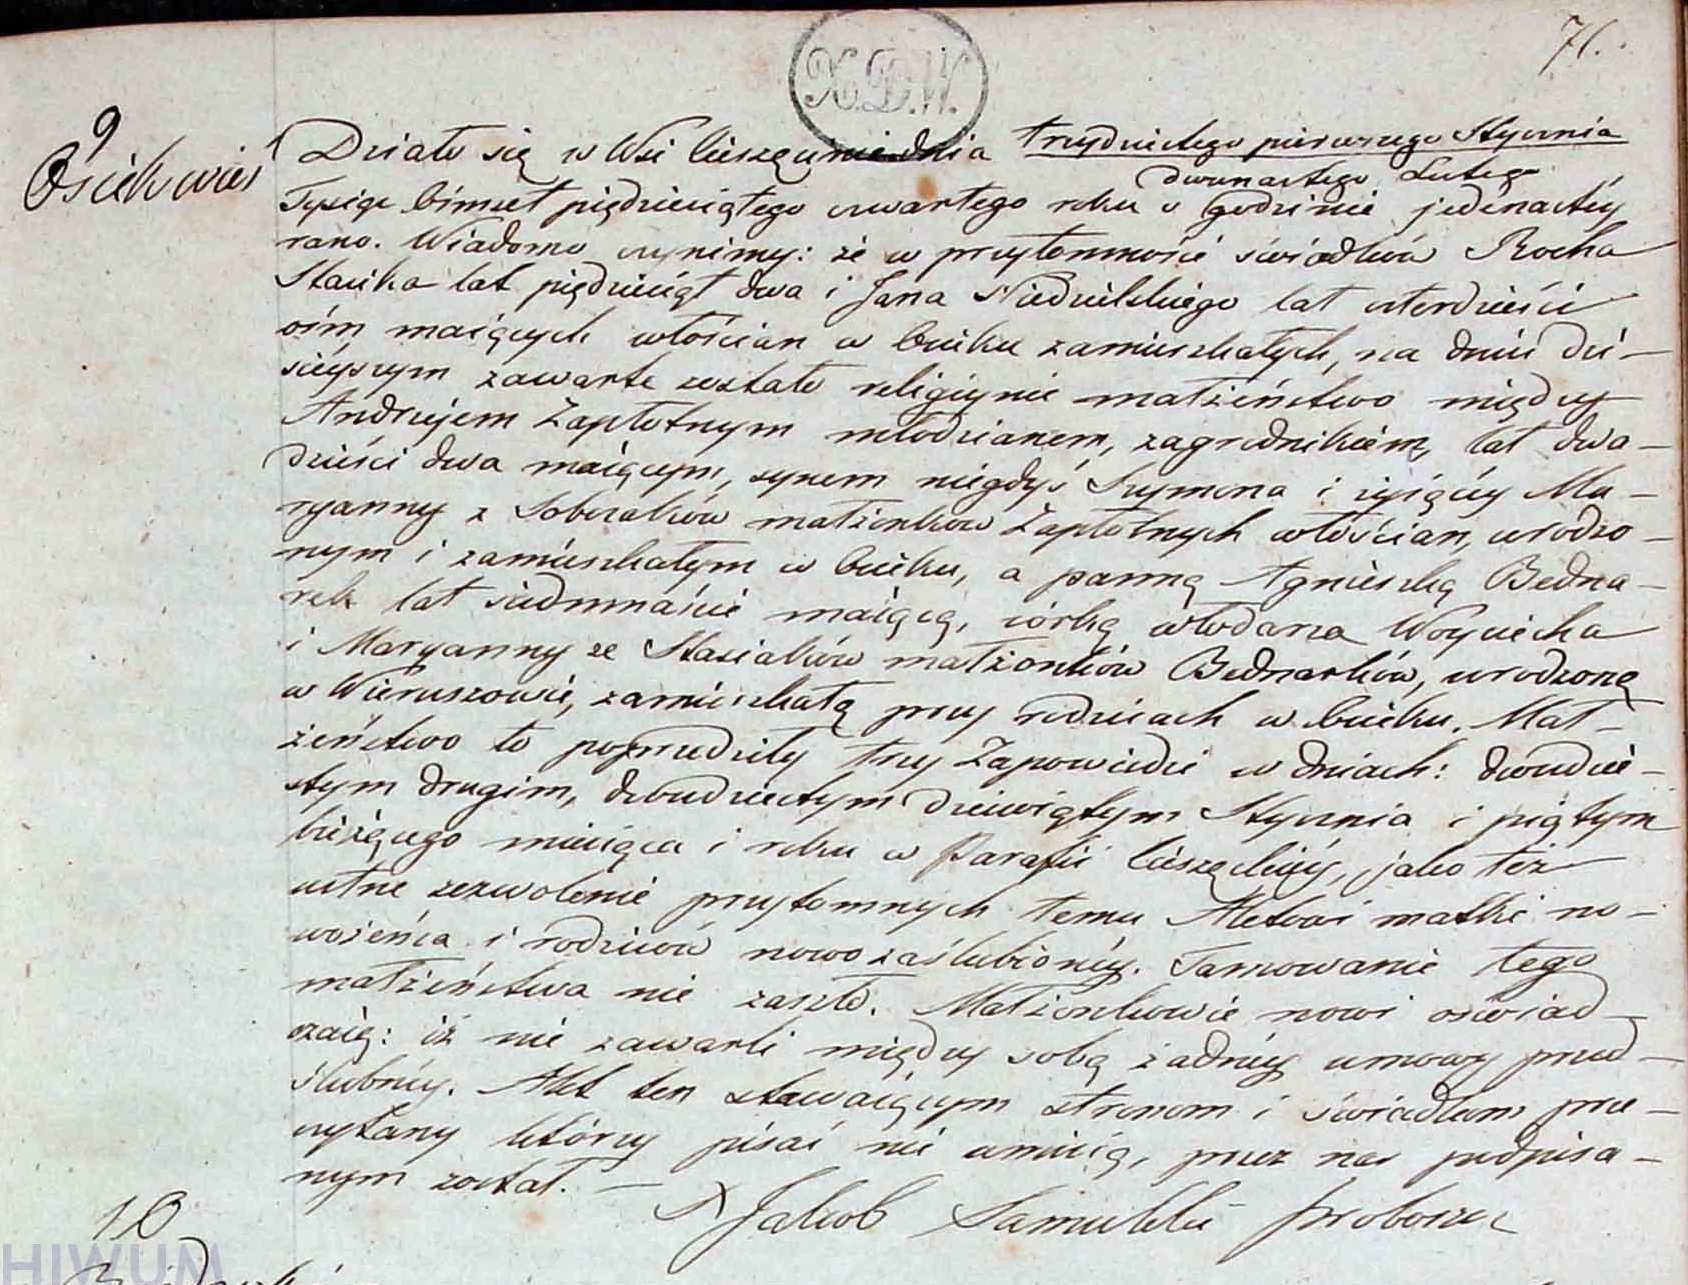 71.
X.D.W.
9
Osiek wieś
Działo się w Wsi Cieszęcinie dnia trzydziestego pierwszego Stycznia
dwunastego Lutego
Tysiąc ośmset piędziesiątego czwartego roku o godzinie jedenastéy
rano. Wiadomo czynimy: że w przytomności świadków Rocha
Stasika lat pięдziesiąt dwa i Jana Niedzielskiego lat czterdzieści
ośm maiących włościan w Osieku zamieszkałych, na dniu dzi-
sieyszym zawarte zostało religiynie małżeństwo między
Andrzejem Zapłotnym młodzianem, zagrodnikiem, lat dwa-
dzieści dwa maiącym, synem niegdyś Szymona i żyiącéy Ma-
ryanny z Soberaków małżonków Zapłotnych włościan, urodzo-
nym i zamieszkałym w Osieku, a panną Agnieszką Bedna-
rek lat siedmnaście maiącą, córką włodarza Woyciecha
i Maryanny ze Stasiaków małżonków Bednarków, urodzoną
w Wieruszowie, zamieszkałą przy rodzicach w Osieku. Mał-
żeństwo to poprzedziły trzy Zapowiedzi w dniach: dwudzie-
stym drugim, dwudziestym dziewiątym Stycznia i piątym
bieżącego miesiąca i roku w Parafii Cieszęckiéy, jako też
ustne zezwolenie przytomnych temu Aktowi matki no-
wożeńca i rodziców nowozaślubionéy. Tamowanie tego
małżeństwa nie zaszło. Małżonkowie nowi oświad-
czaią: iż nie zawarli między sobą żadnéy umowy przed-
ślubnéy. Akt ten stawaiącym stronom i świadkom prze-
czytany którzy pisać nie umieią, przez nas podpisa-
nym został. —
X Jakób Samulski proboszcz
10
HIWUM